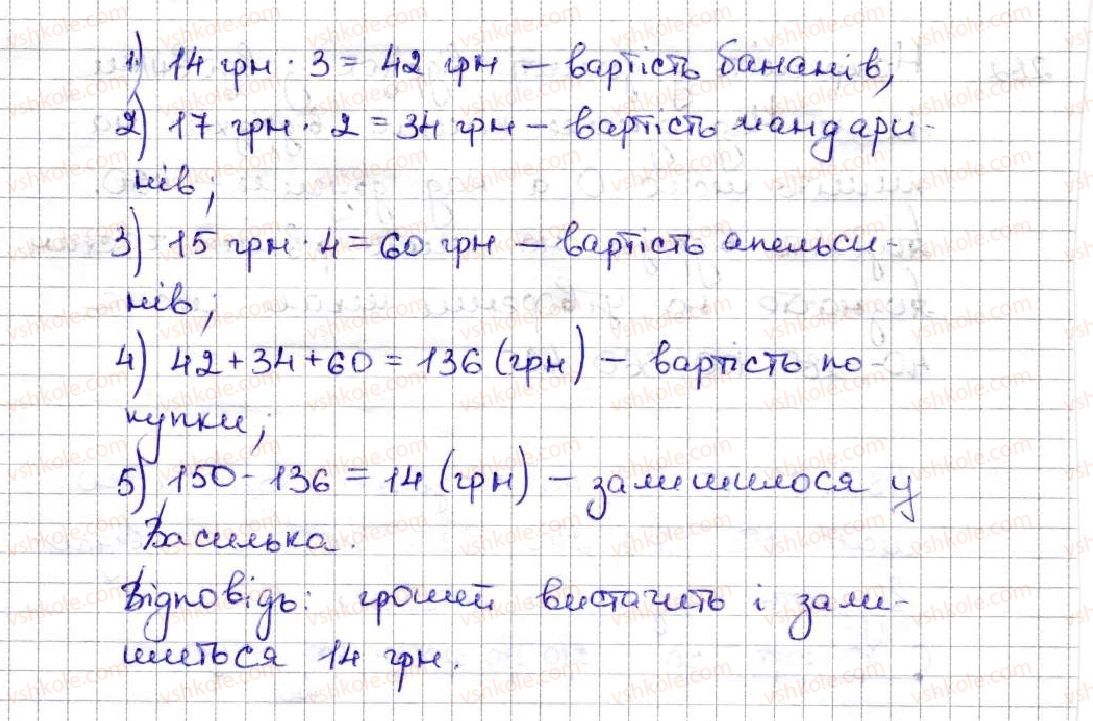 1) 14 грн · 3 = 42 грн – вартість бананів;
2) 17 грн · 2 = 34 грн – вартість мандари-
нів;
3) 15 грн · 4 = 60 грн – вартість апельси-
нів;
4) 42 + 34 + 60 = 136 (грн) – вартість по-
купки;
5) 150 - 136 = 14 (грн) – залишилося у
Василька.
Відповідь: грошей вистачить і зали-
шиться 14 грн.